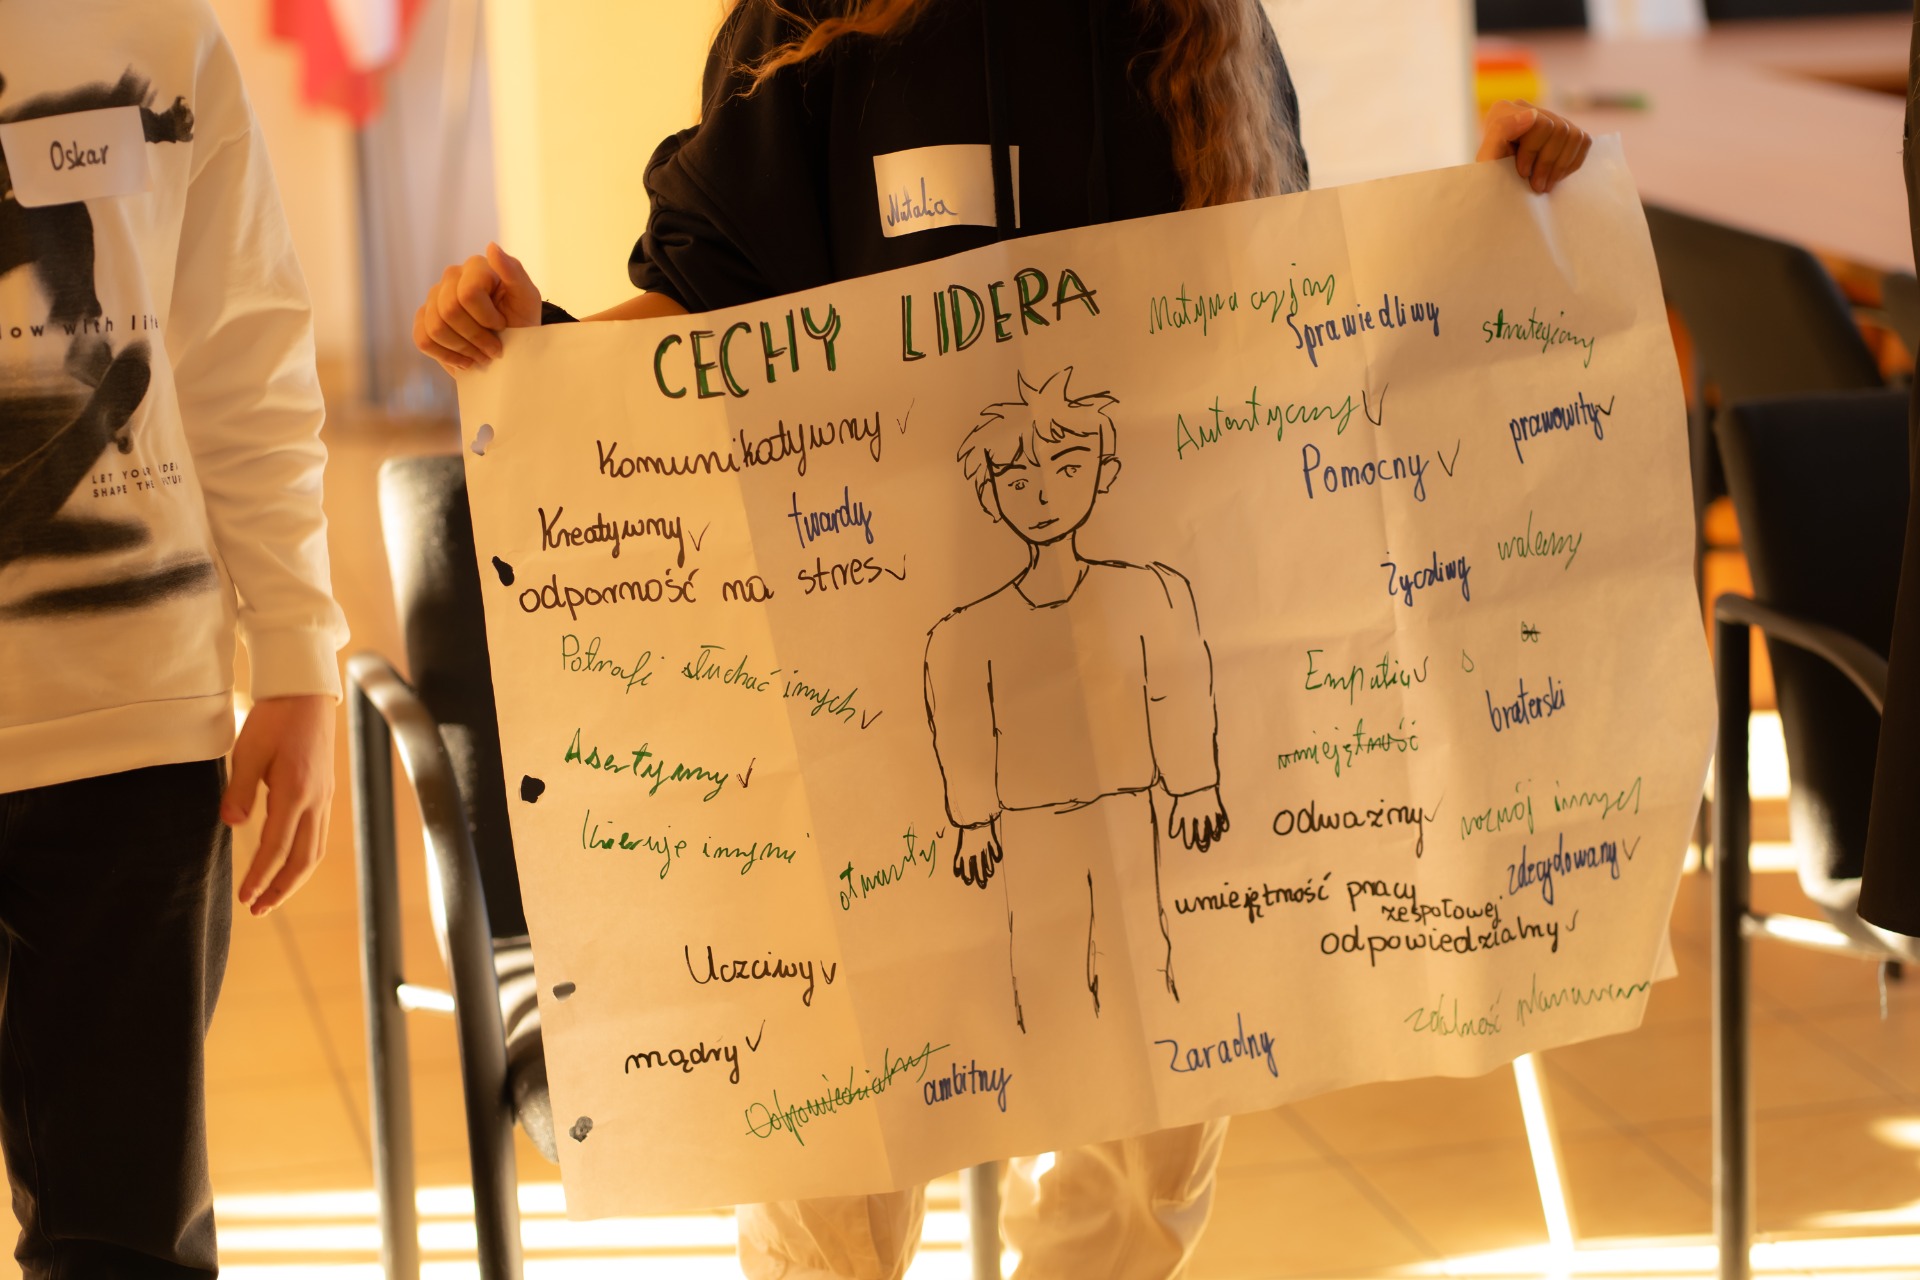 Oskar
low with life
LET YOUR IDEA
SHAPE THE FUTUR
Natalia
CECHY LIDERA
Komunikatywny
Kreatywny
twardy
odporność na stres
Potrafi słuchać innych
Asertywny
kieruje innymi
otwarty
Uczciwy
mądry
Odpowiedzialny
ambitny
Zaradny
Sprawiedliwy
strategiczny
Autentyczny
prawowity
Pomocny
waleczny
życzliwy
Empatia
braterski
umiejętność
odważny
rozwój innych
zdecydowany
umiejętność pracy
zespołowej
odpowiedzialny
zdolność planowania